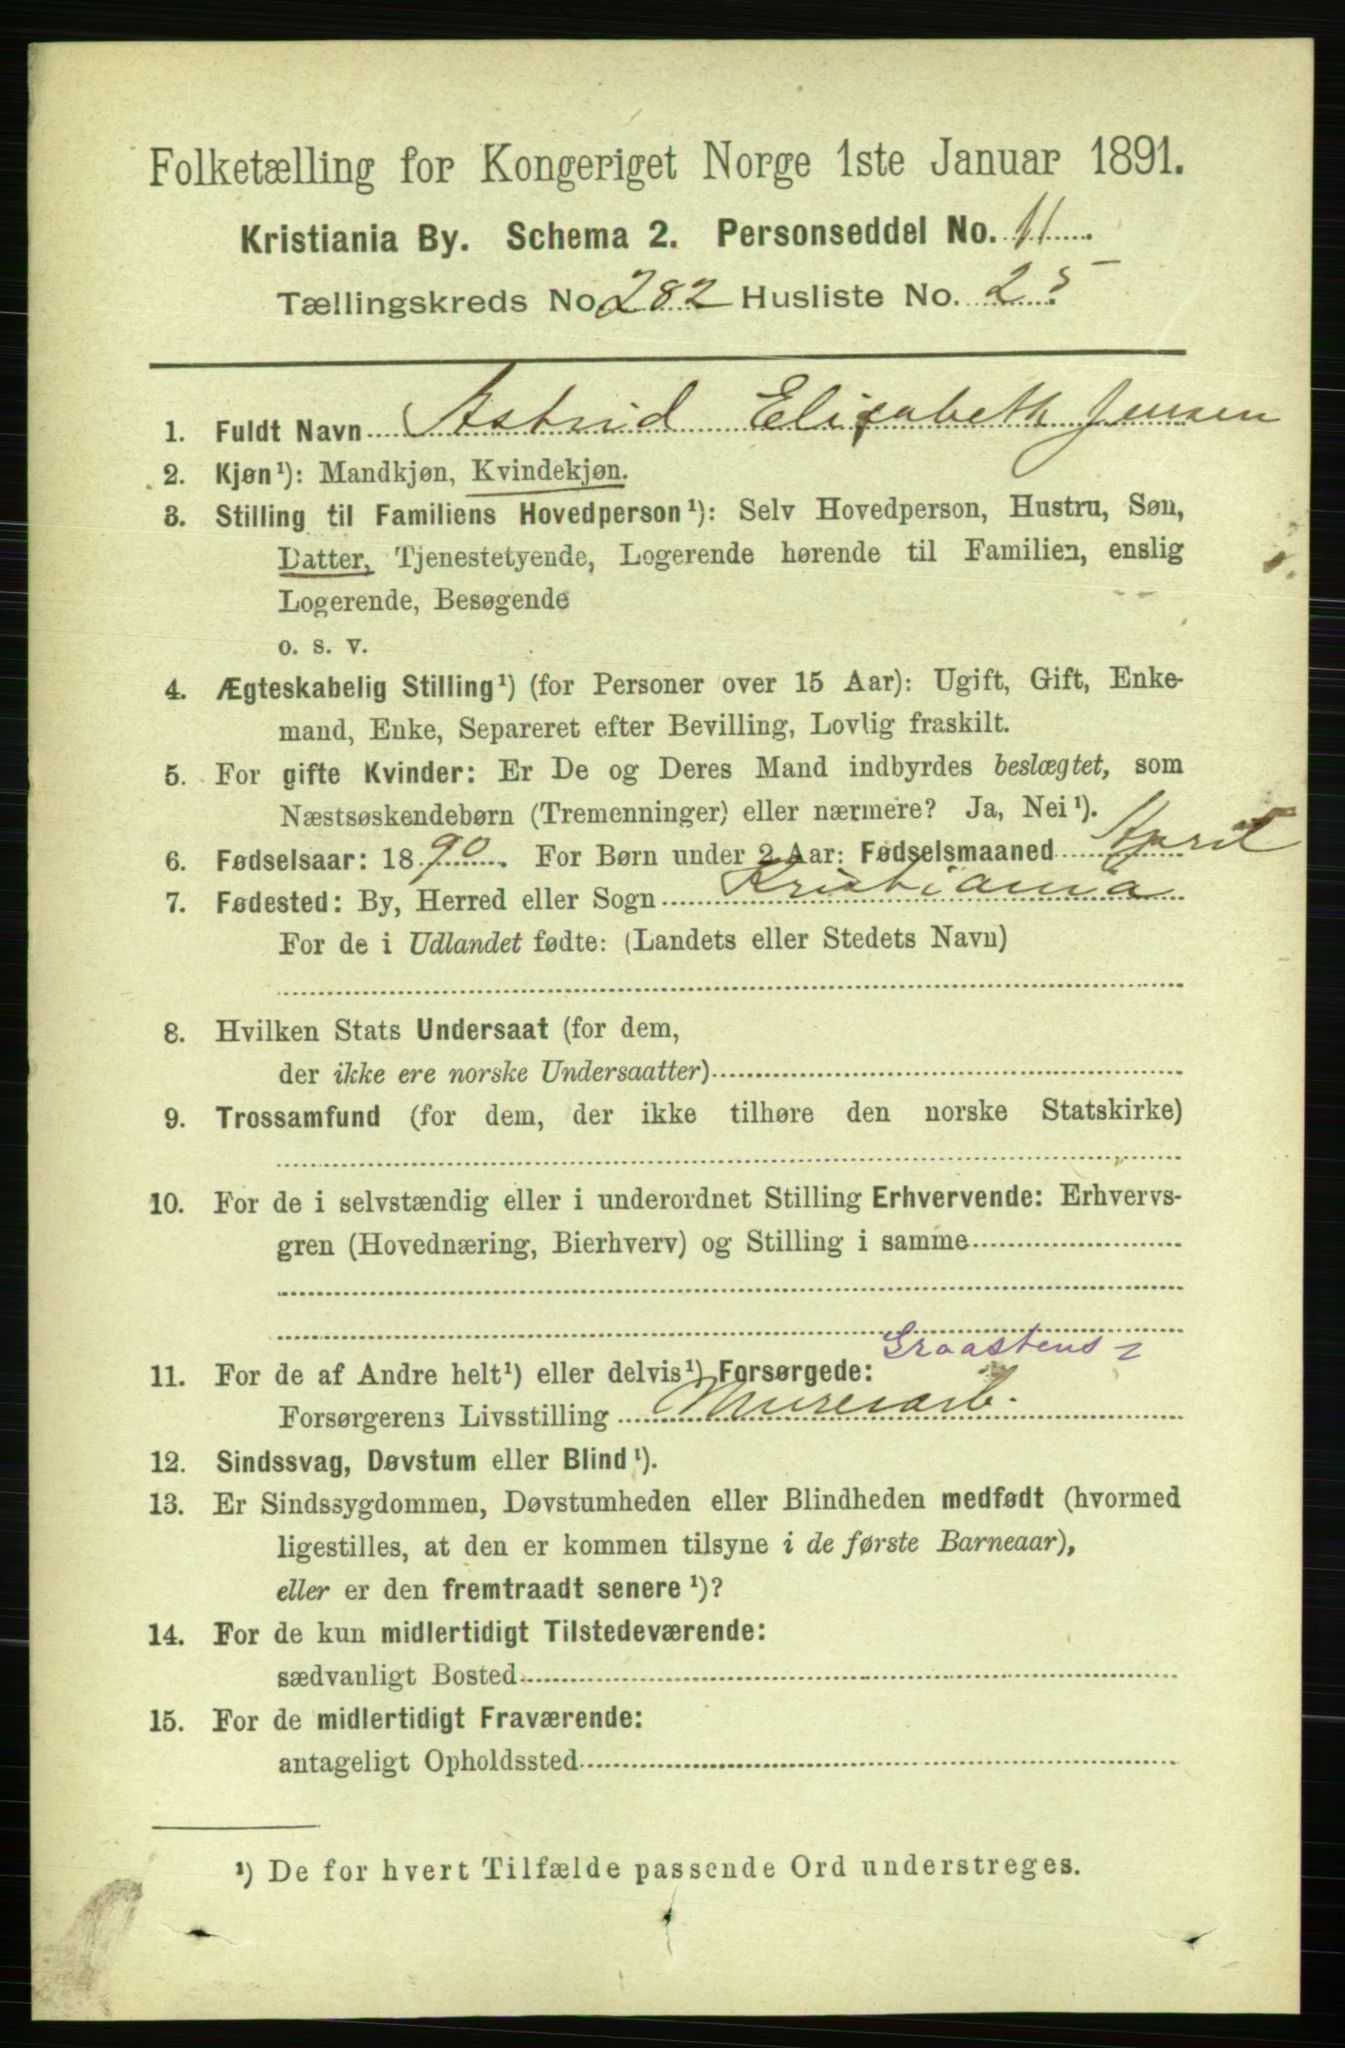 Folketælling for Kongeriget Norge 1ste Januar 1891.
Kristiania By. Schema 2. Personseddel No. 11
Tællingskreds No. 282 Husliste No. 25
1. Fuldt Navn Astrid Elisabeth Jensen
2. Kjøn¹): Mandkjøn, Kvindekjøn.
3. Stilling til Familiens Hovedperson¹): Selv Hovedperson, Hustru, Søn,
Datter, Tjenestetyende, Logerende hørende til Familien, enslig
Logerende, Besøgende
o. s. v.
4. Ægteskabelig Stilling¹) (for Personer over 15 Aar): Ugift, Gift, Enke-
mand, Enke, Separeret efter Bevilling, Lovlig fraskilt.
5. For gifte Kvinder: Er De og Deres Mand indbyrdes beslægtet, som
Næstsøskendebørn (Tremenninger) eller nærmere? Ja, Nei¹).
6. Fødselsaar: 1890. For Børn under 2 Aar: Fødselsmaaned April
7. Fødested: By, Herred eller Sogn Kristiania
For de i Udlandet fødte: (Landets eller Stedets Navn)
8. Hvilken Stats Undersaat (for dem,
der ikke ere norske Undersaatter)
9. Trossamfund (for dem, der ikke tilhøre den norske Statskirke)
10. For de i selvstændig eller i underordnet Stilling Erhvervende: Erhvervs-
gren (Hovednæring, Bierhverv) og Stilling i samme
Graastens-
11. For de af Andre helt¹) eller delvis¹) Forsørgede:
Forsørgerens Livsstilling Murerarb.
12. Sindssvag, Døvstum eller Blind¹).
13. Er Sindssygdommen, Døvstumheden eller Blindheden medfødt (hvormed
ligestilles, at den er kommen tilsyne i de første Barneaar),
eller er den fremtraadt senere¹)?
14. For de kun midlertidigt Tilstedeværende:
sædvanligt Bosted
15. For de midlertidigt Fraværende:
antageligt Opholdssted
¹) De for hvert Tilfælde passende Ord understreges.